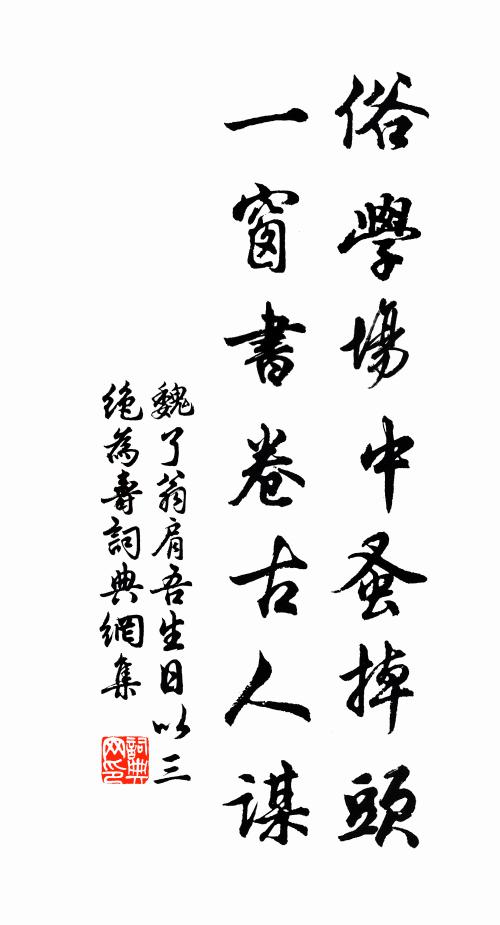 俗學場中蚤掉頭
一窗書卷古人謀
魏了翁肩吾生日以三
絶為壽詞典網集
詞典网印